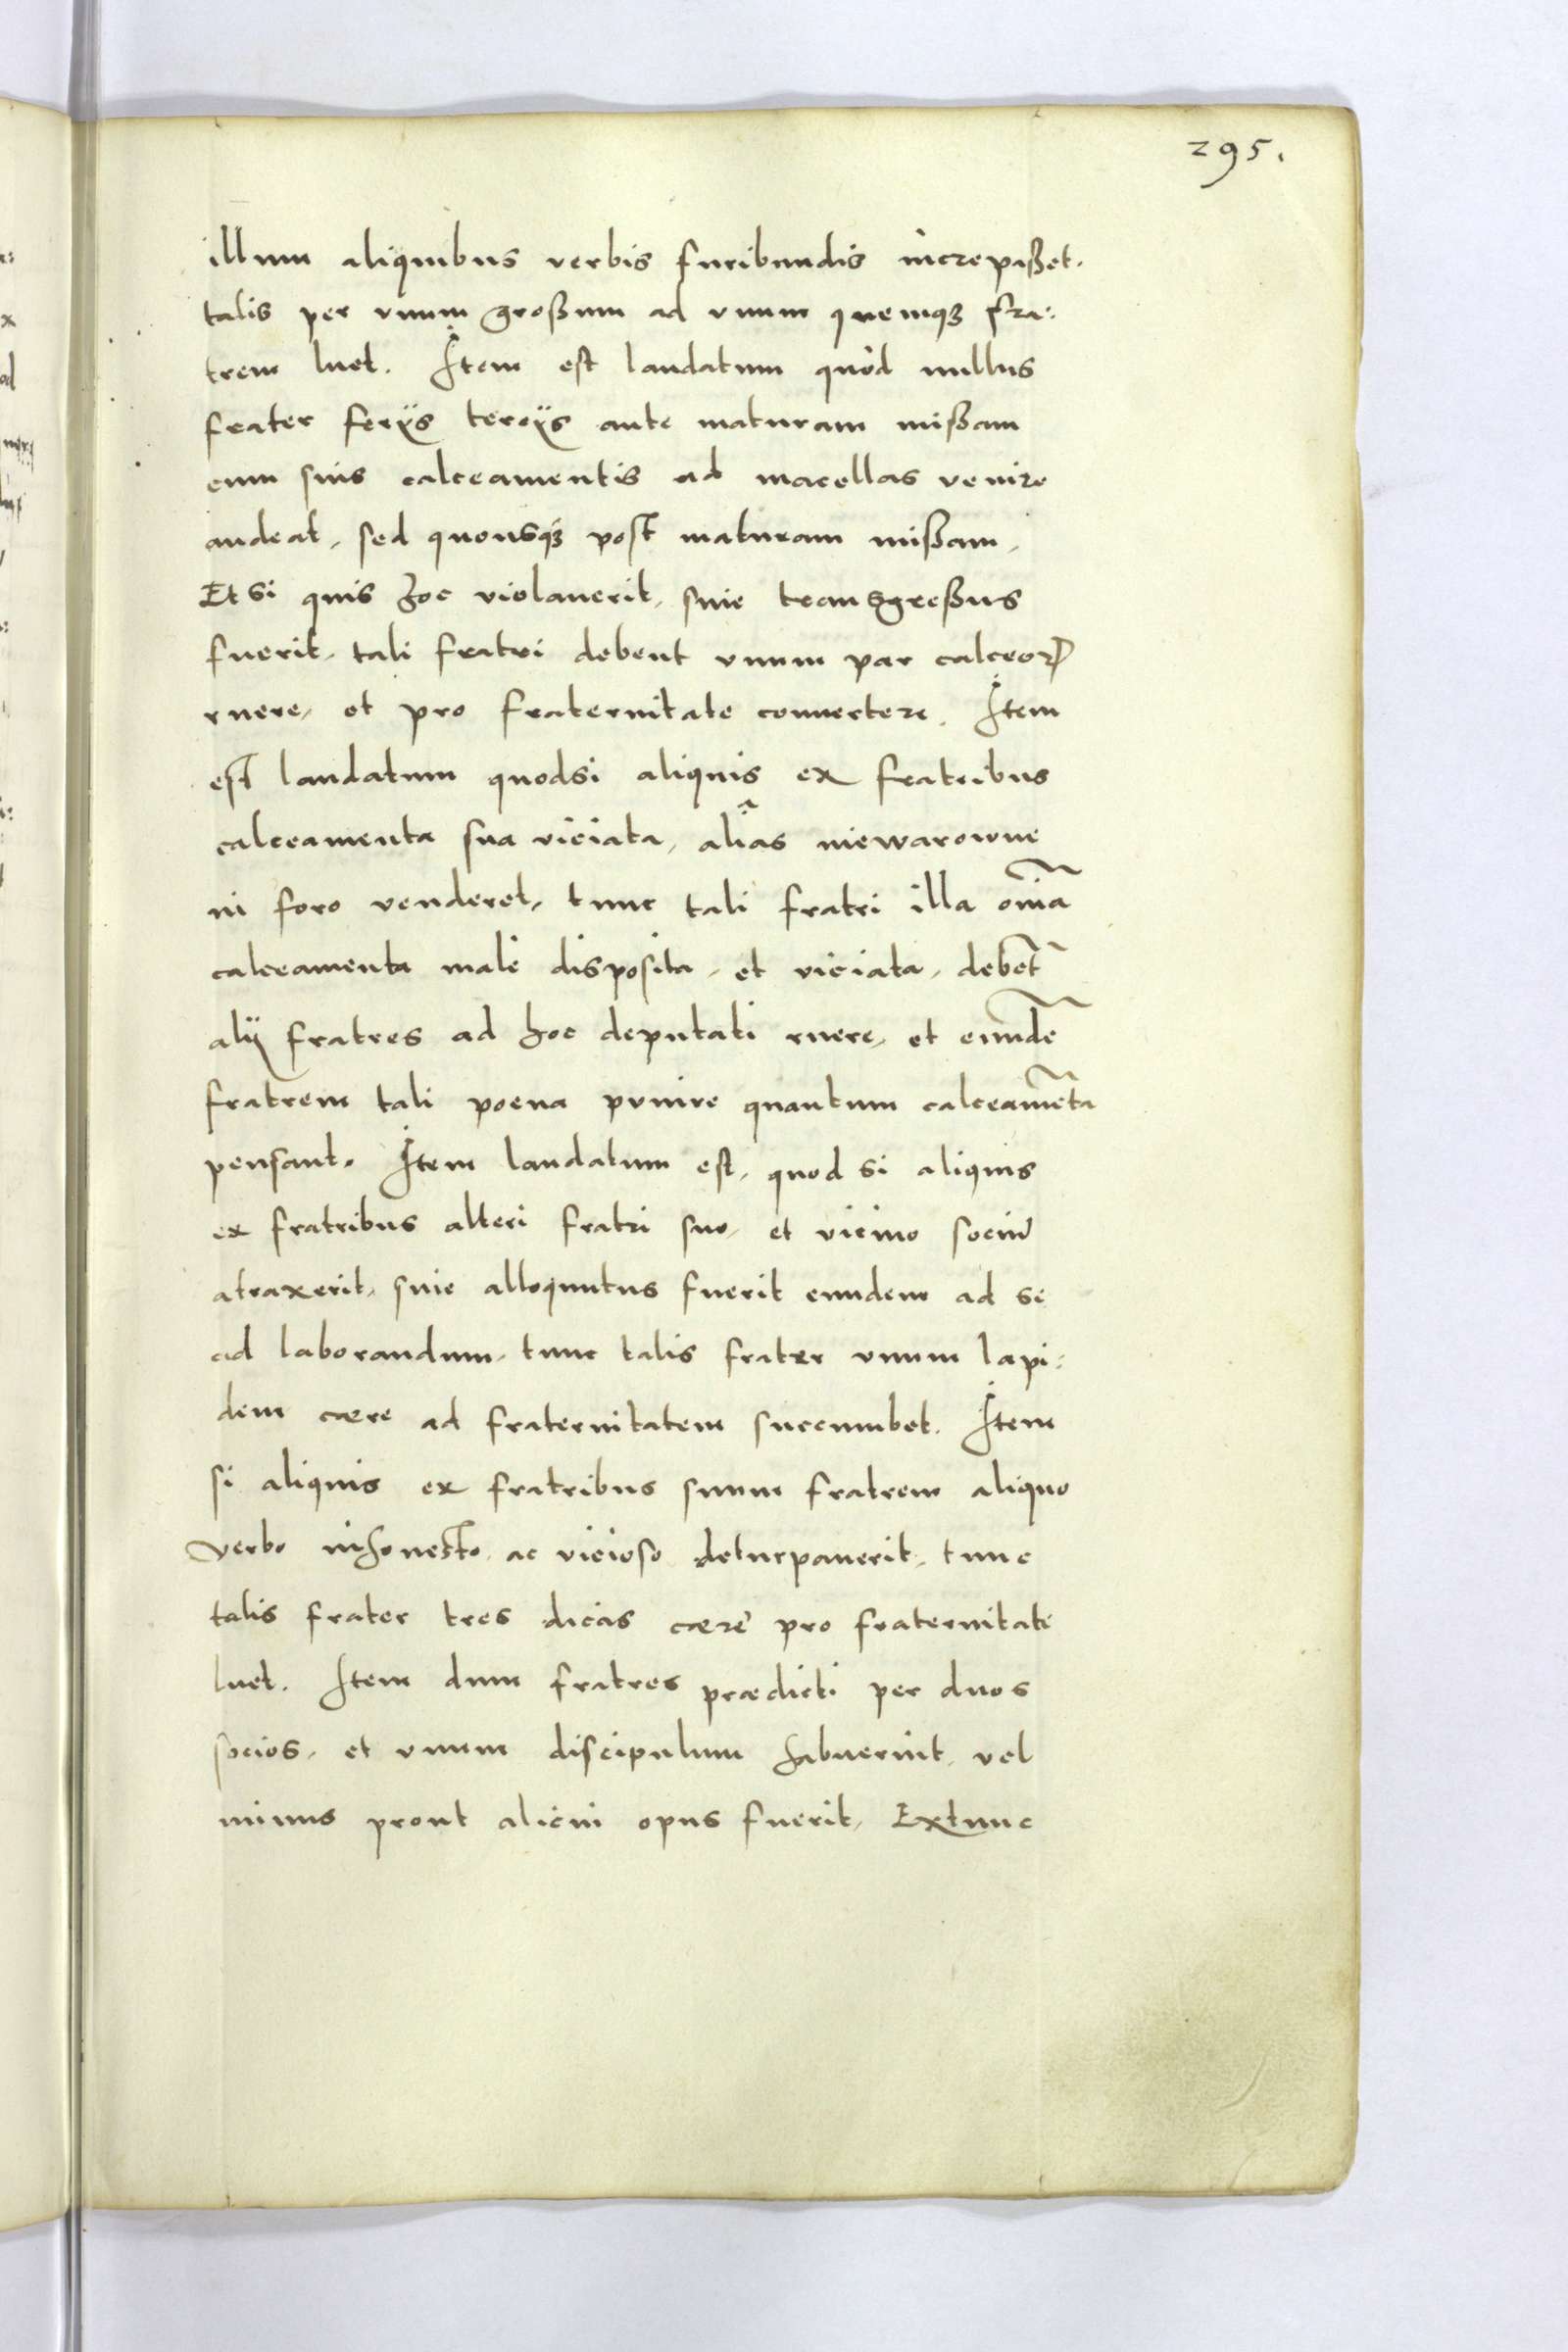 295.
illum aliquibus verbis furibundis increpaßet.
talis per vnum großum ad vnum quemqꝫ fra:
trem luet. Item est laudatum quòd nullus
frater ferijs tercijs ante maturam mißam
cum suis calceamentis ad macellas venire
audeat, sed quousqꝫ post maturam mißam,
Et si quis hoc violauerit, siue transgreßus
fuerit, tali fratri debent vnum par calceoꝝ
ruere, et pro fraternitate conuertere. Item
est laudatum quodsi aliquis ex fratribus
calceamenta sua viciata, aliâs niewarowne
in foro venderet, tunc tali fratri illa oĩa
calceamenta male disposita, et viciata, debẽt
alij fratres ad hoc deputati ruere, et eundẽ
fratrem tali poena punire quantum calceamẽta
pensant. Item laudatum est, quod si aliquis
ex fratribus alteri fratri suo, et vicino sociũ
atraxerit, siue alloquutus fuerit eundem ad se
ad laborandum, tunc talis frater vnum lapi:
dem cæræ ad fraternitatem succumbet. Item
si aliquis ex fratribus suum fratrem aliquo
verbo inhonesto, ac vicioso deturpauerit, tunc
talis frater tres dicas cæræ pro fraternitate
luet. Item dum fratres prædicti per duos
socios, et vnum discipulum habuerint, vel
minus prout alicui opus fuerit, Extunc